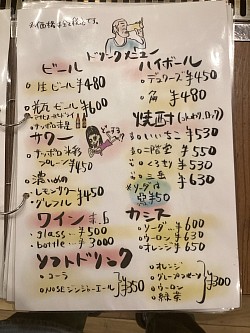 ドリンクメニュー
ビール
生ビール ¥480
瓶ビール ¥600
サッポロ赤星
サワー
サッポロ氷彩
プレーン ¥450
濃いめの
レモンサワー ¥450
グレフル
ワイン 赤.白
glass ¥500
bottle ¥3000
ソフトドリンク
コーラ
NOSEジンジャーエール ¥350
ハイボール
デュワーズ ¥450
角 ¥480
焼酎
いいちこ ¥530
二階堂 ¥550
くろまる ¥530
三岳 ¥630
※ソーダは
¥50
カシス
ソーダ ¥600
ウーロン ¥630
オレンジ ¥650
オレンジ
グレープフルーツ
ウーロン
緑茶
¥300